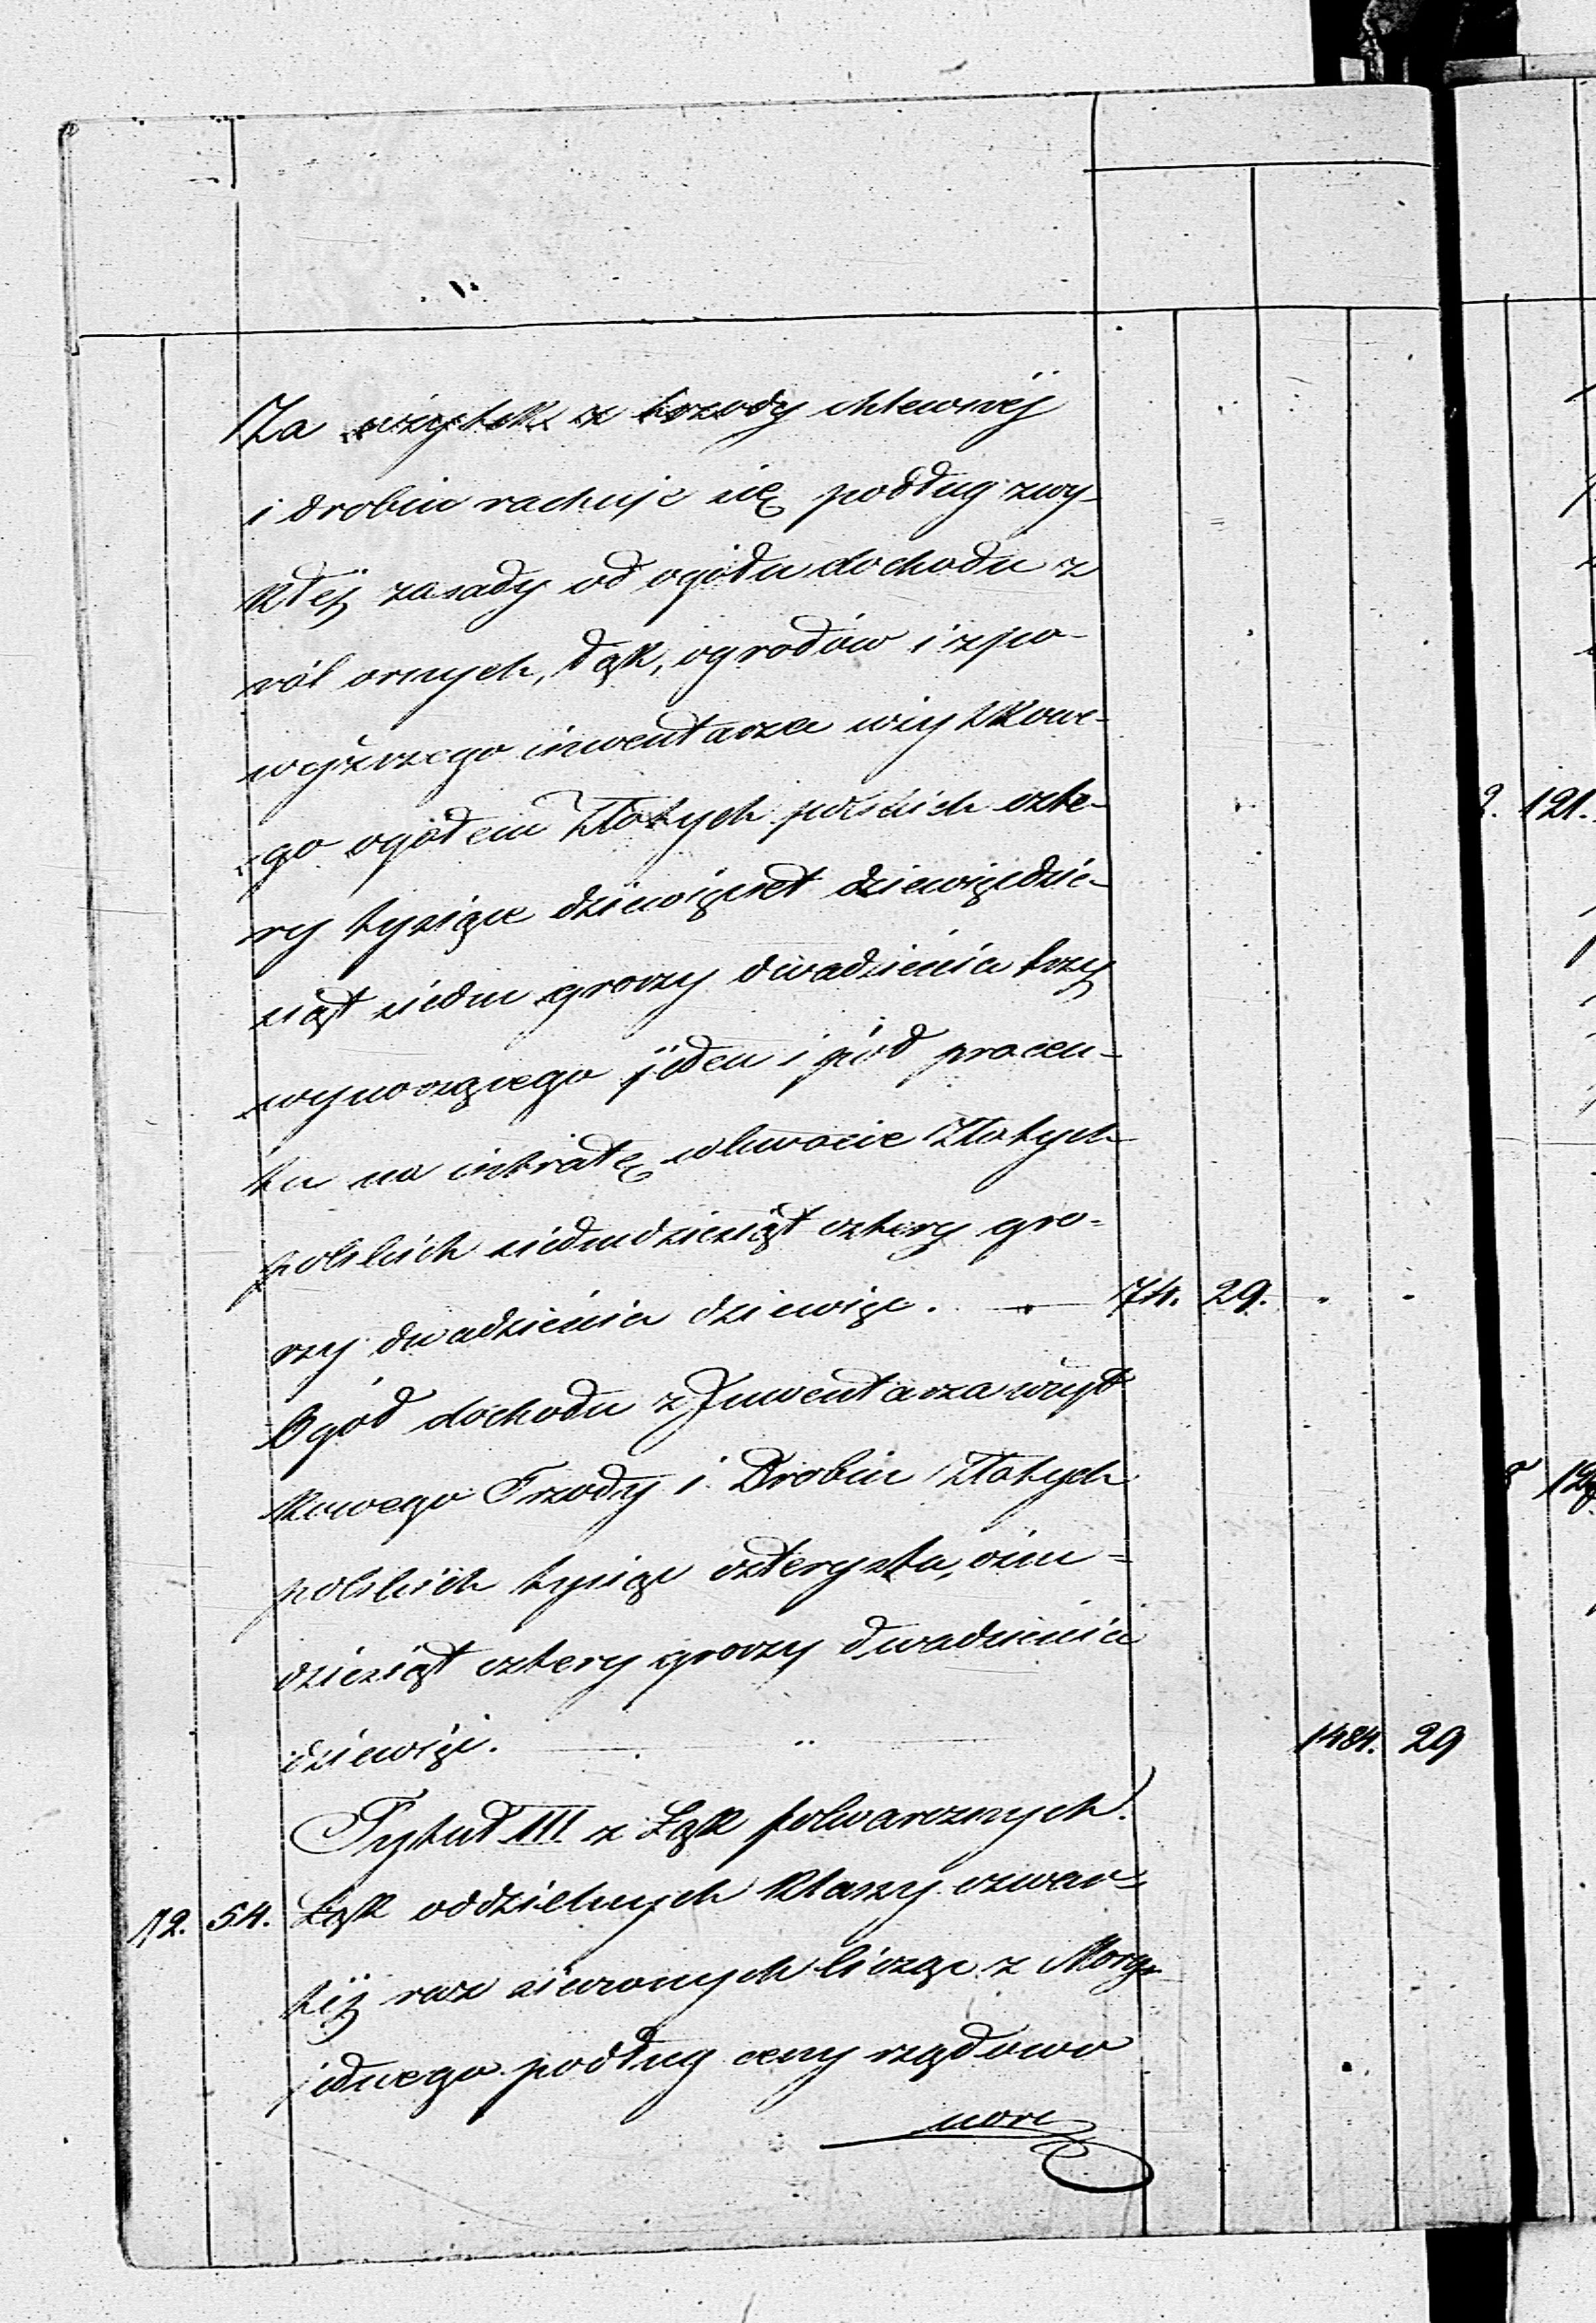 Za użytek z trzody chlewnéj
i drobiu rachuje się podług zwy-
kłéj zasady od ogółu dochodu z
ról ornych, łąk, ogrodów i z po-
wyższego inwentarza użytkowe-
go ogółem Złotych polskich czte-
ry tysiące dziewięset dziewiędzie-
siąt siedm groszy dwadzieścia trzy
wynoszącego jeden i pół procen-
tu na intratę w kwocie Złotych
polskich siedmdziesiąt cztery gro-
szy dwadzieścia dziewięć. 74. 29.
Ogół dochodu z Inwentarza użyt
kowego Trzody i Drobiu Złotych
polskich tysiąc czterysta, ośm-
dziesiąt cztery groszy dwadzieścia
dziewięć. 1484. 29
Tytuł III z Łąk folwarcznych.
12. 54. Łąk oddzielnych klassy czwar-
téj raz siecznych licząc z Morga
jednego podług ceny rządowo
2. 121.